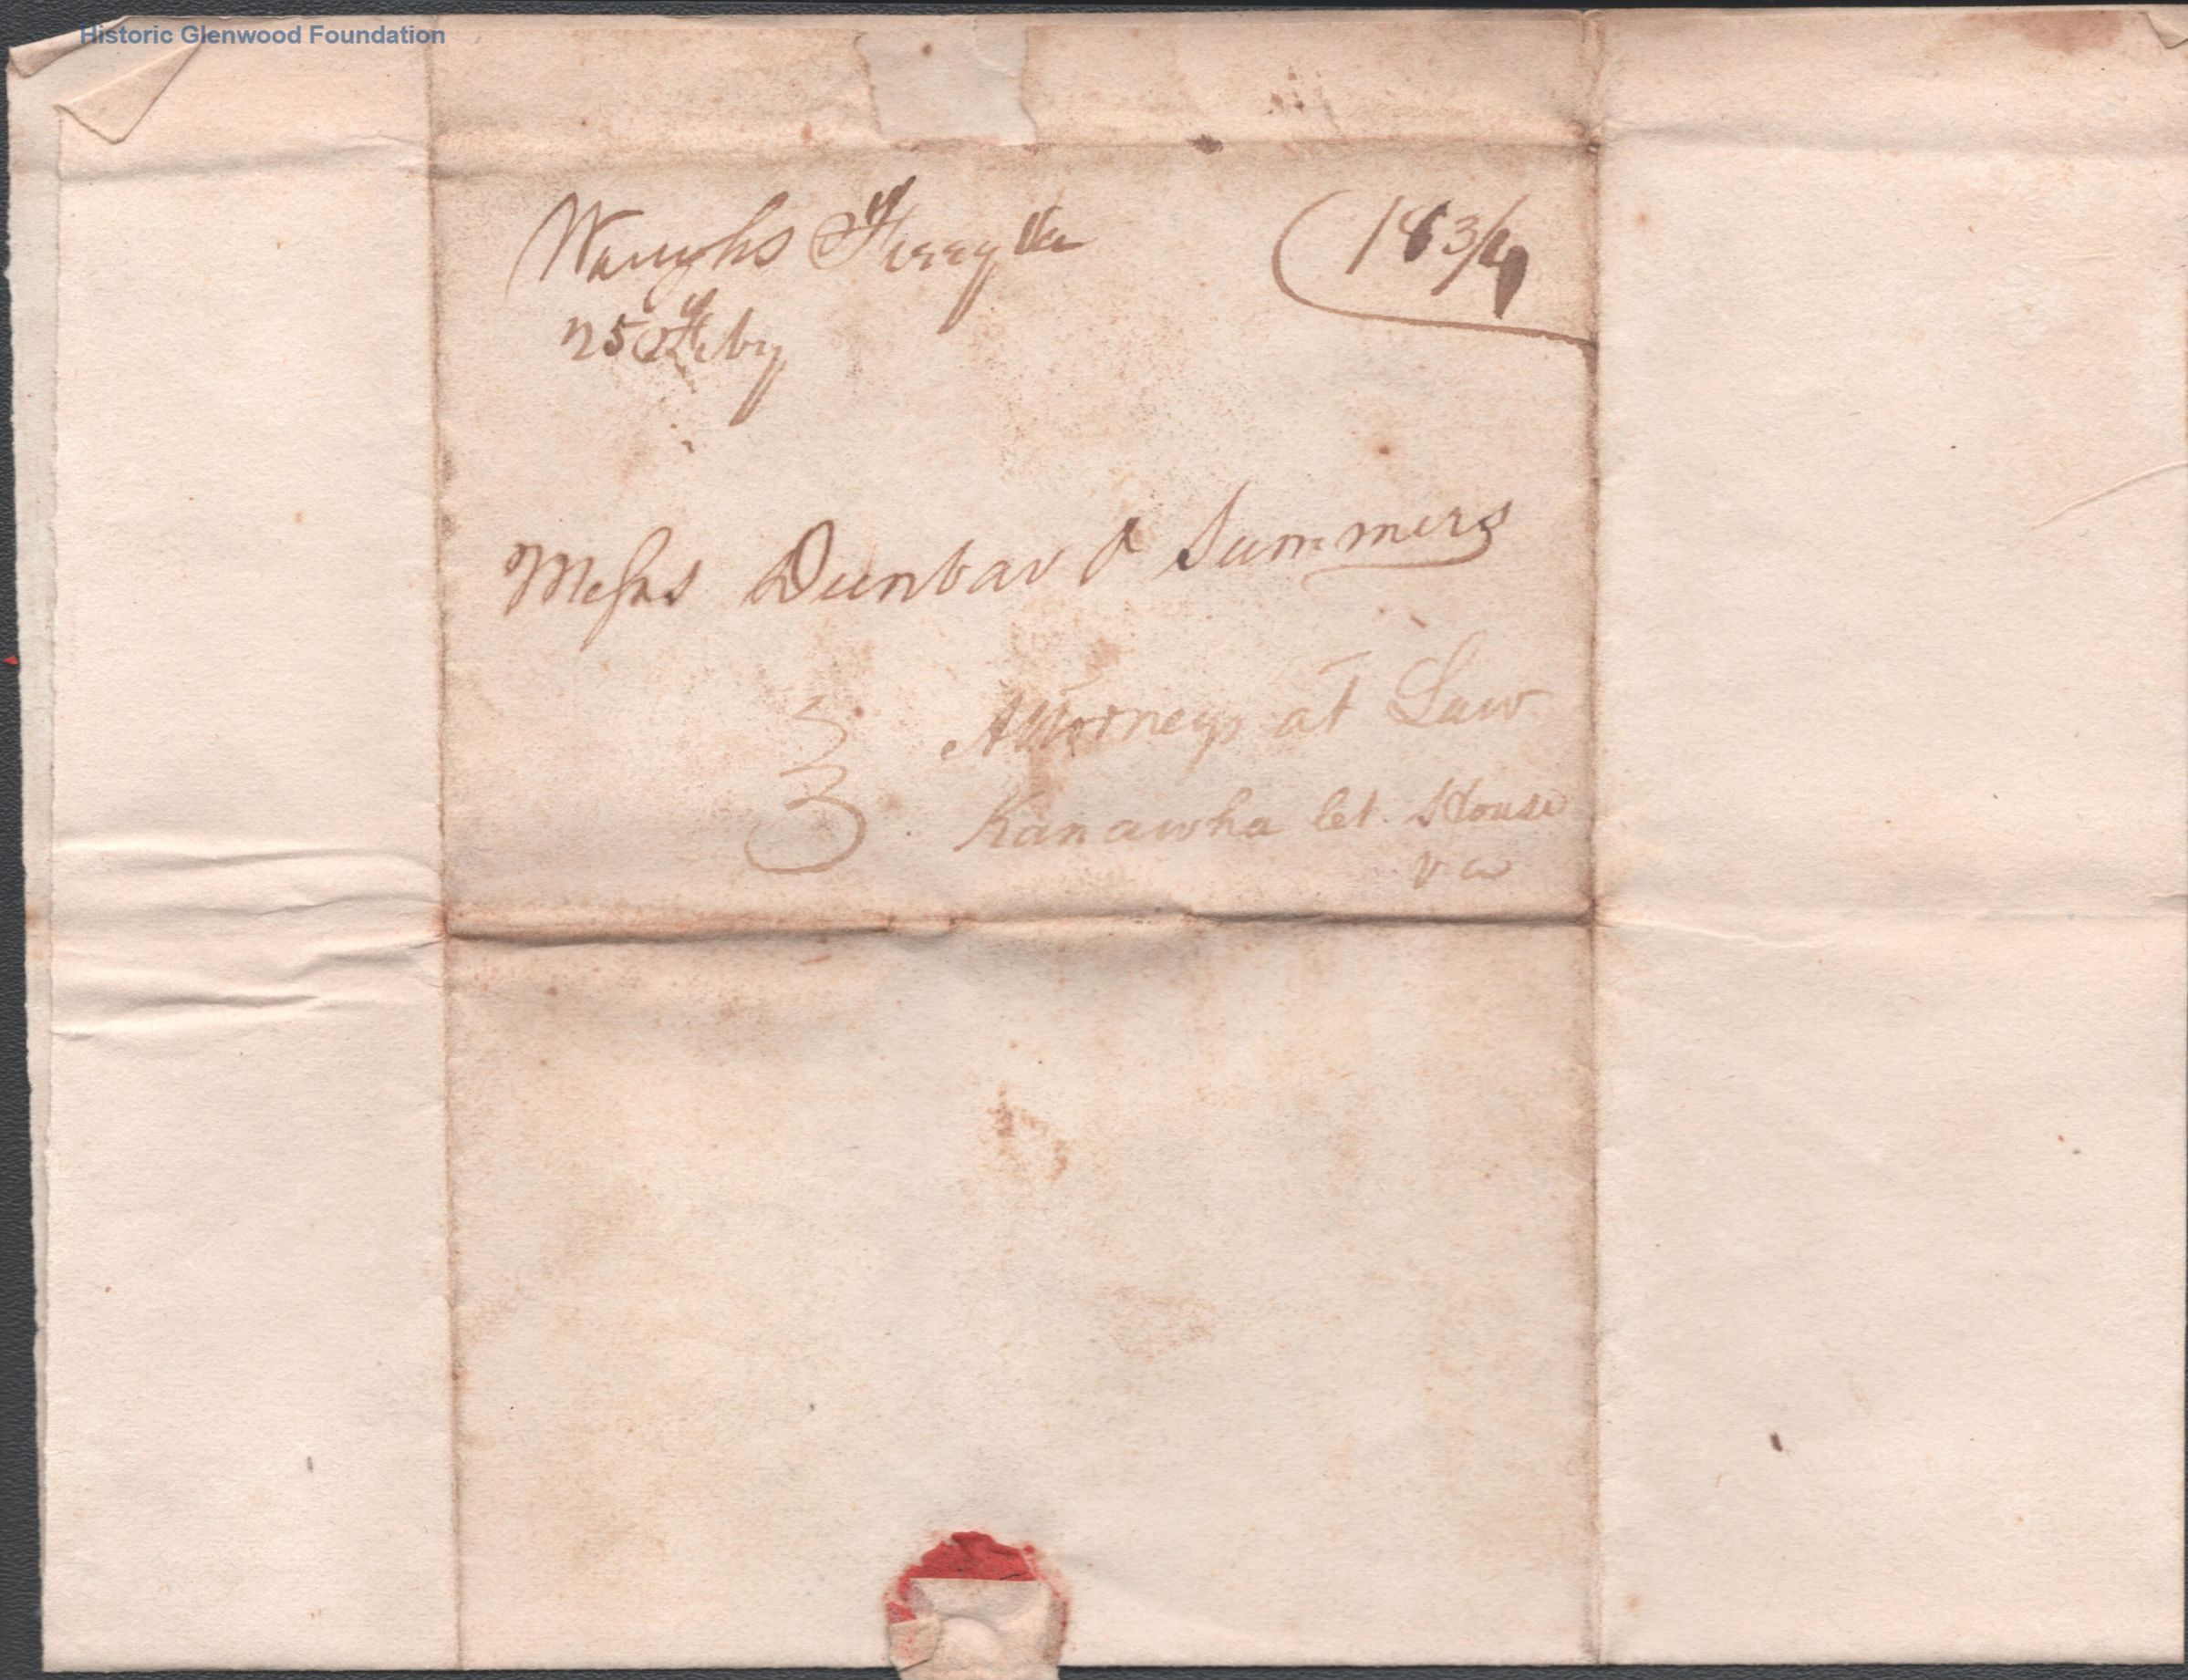 Historic Glenwood Foundation
Waughs Ferry Va 18 3/4
25 Feby
Messrs Dunbar & Summers
Attorneys at Law
Kanawha Ct. House
Va